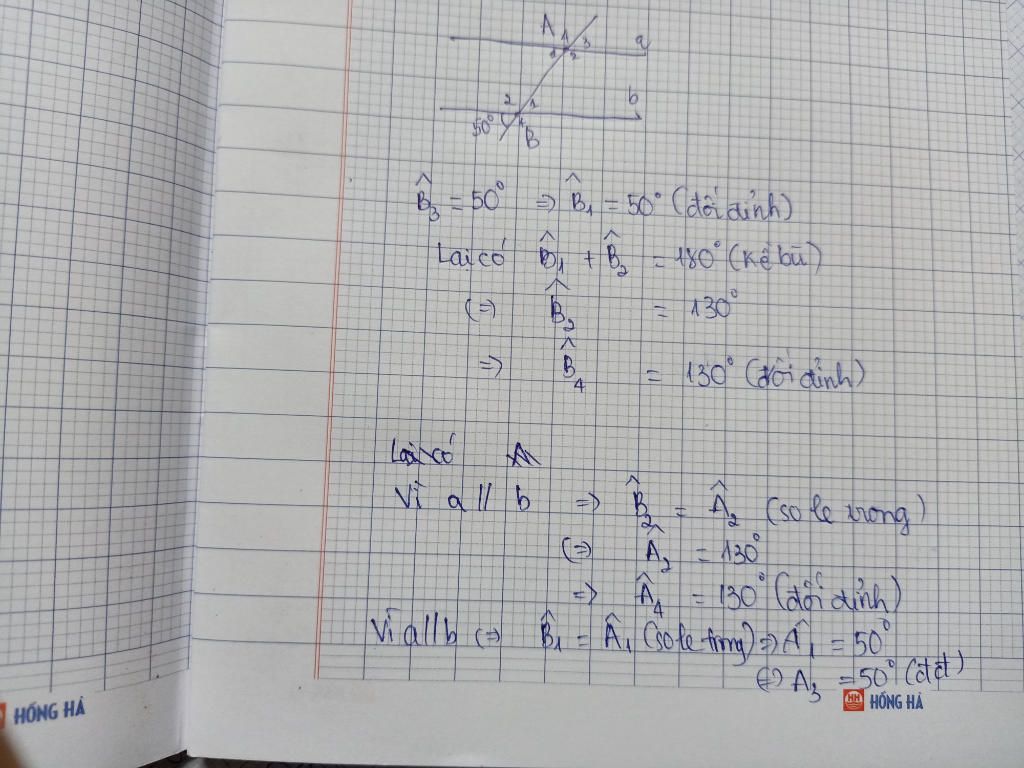 A 4 3 a
1 2
2 1 b
50° 4 B
B̂₃ = 50° => B̂₁ = 50° (đối đỉnh)
Lại có B̂₁ + B̂₂ = 180° (kề bù)
(=) B̂₂ = 130°
=> B̂₄ = 130° (đối đỉnh)
Lại có A
Vì a // b => B̂₂ = Â₂ (so le trong)
(=) Â₂ = 130°
=> Â₄ = 130° (đối đỉnh)
Vì a//b (=) B̂₁ = Â₁ (so le trong) => Â₁ = 50°
(=) A₃ = 50° (đđ)
HỒNG HÀ
HH HỒNG HÀ